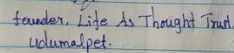 founder, Life As Thought Trust.
udumalpet.